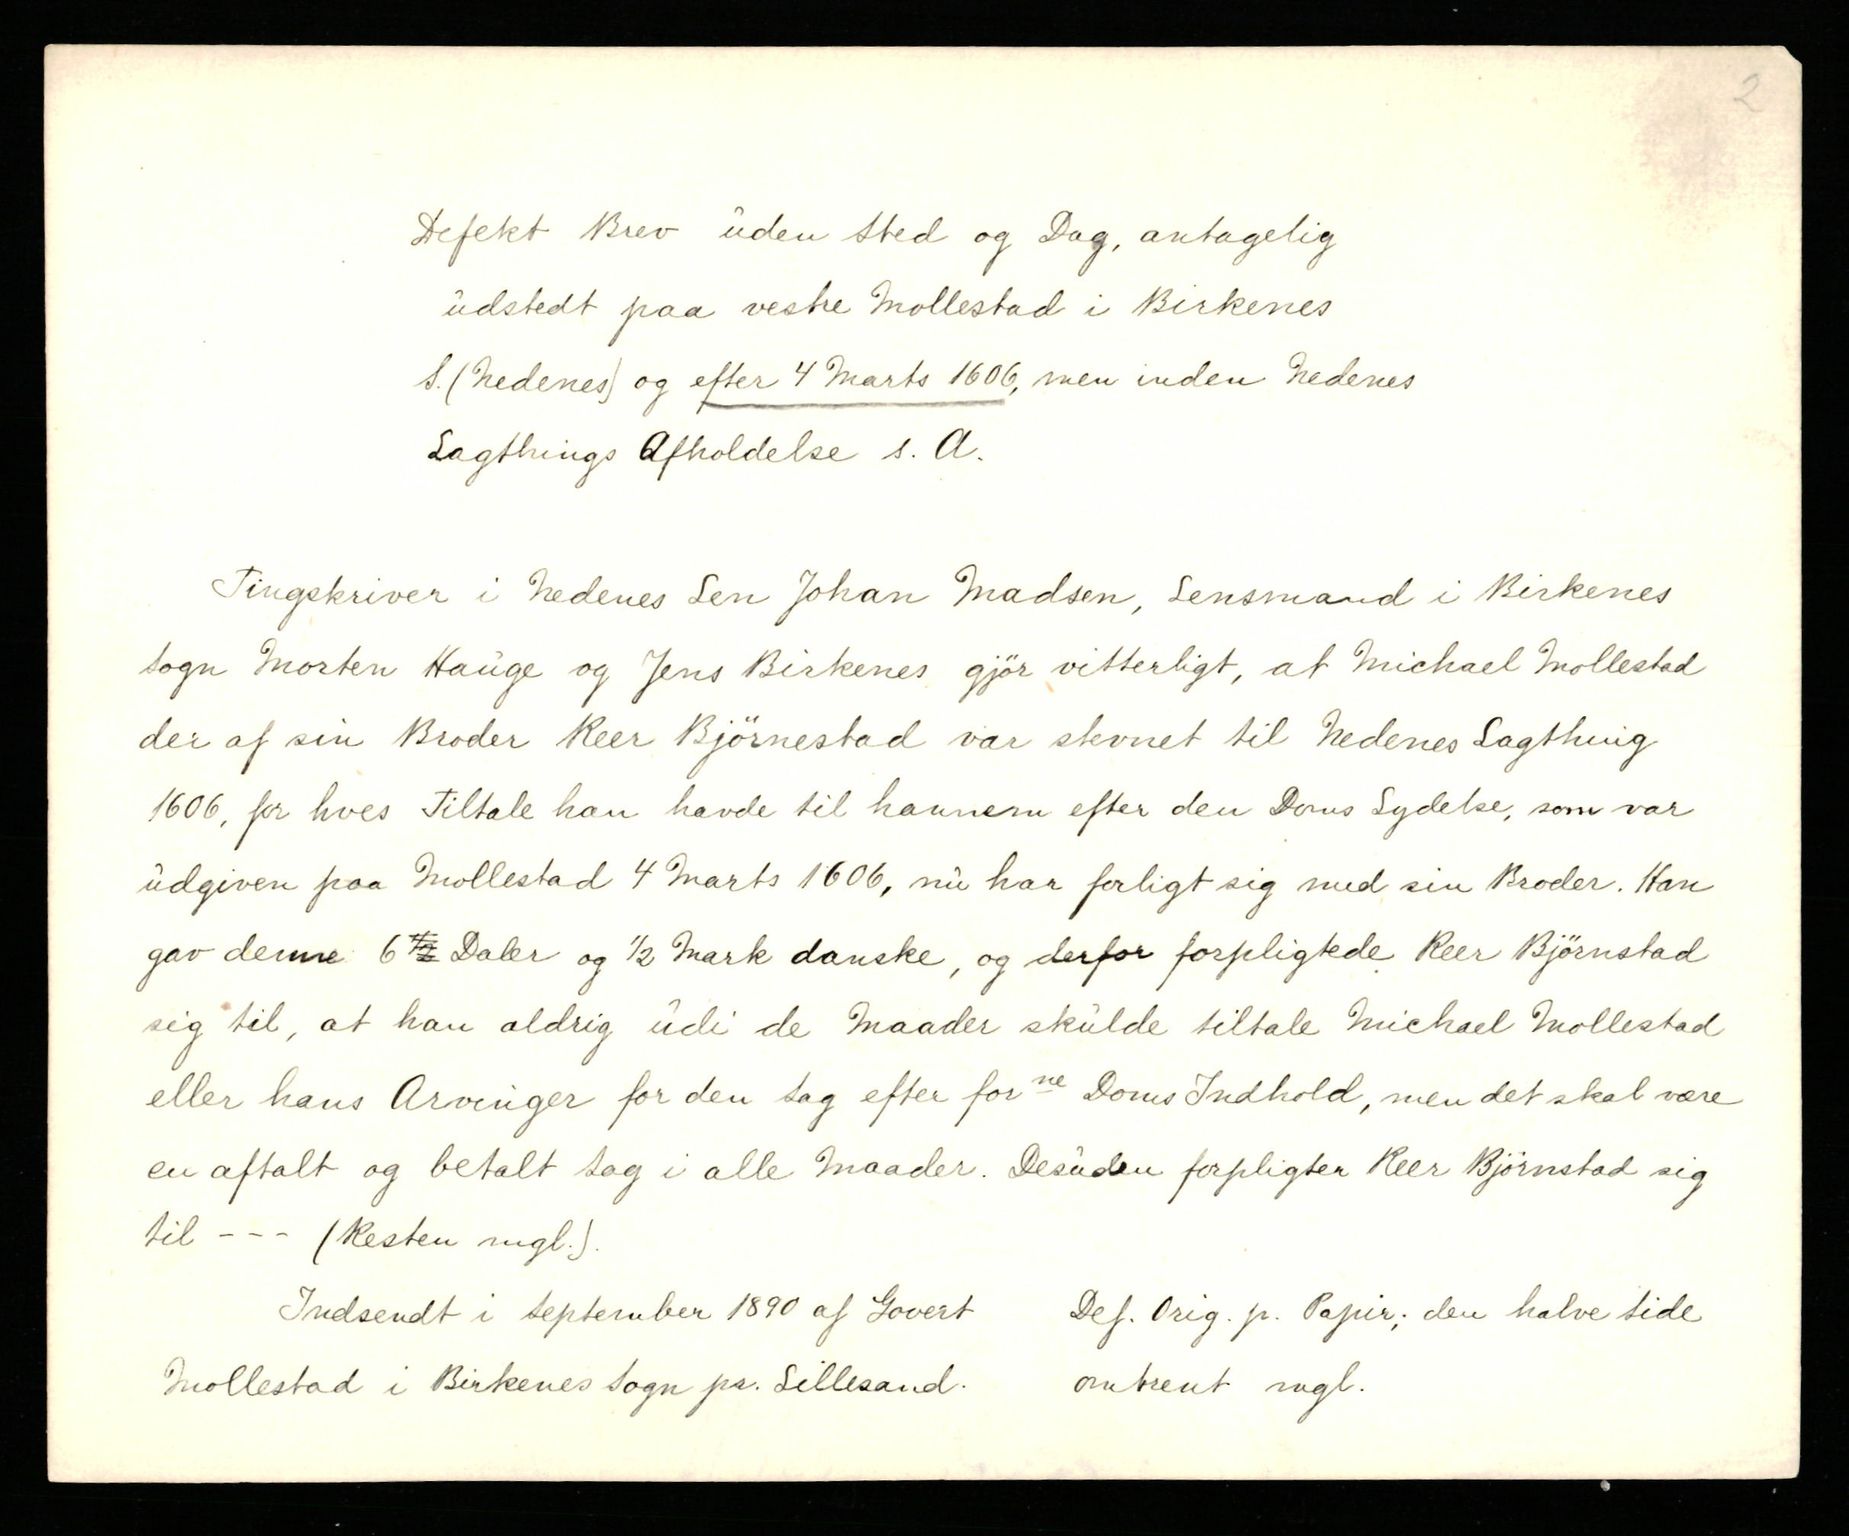 2
Defekt Brev uden Sted og Dag, antagelig
udstedt paa vestre Mollestad i Birkenes
S. (Nedenes) og efter 4 Marts 1606, men inden Nedenes
Lagthings Afholdelse s. A.
Tingskriver i Nedenes Len Johan Madsen, Lensmand i Birkenes
Sogn Morten Hauge og Jens Birkenes gjör vitterligt, at Michael Mollestad
der af sin Broder Reer Björnestad var stevnet til Nedenes Lagthing
1606, for hves Tiltale han havde til hannem efter den Doms Lydelse, som var
udgiven paa Mollestad 4 Marts 1606, nu har forligt sig med sin Broder. Han
gav denne 6 Daler og 1/2 Mark danske, og derfor forpligtede Reer Björnstad
sig til, at han aldrig udi de Maader skulde tiltale Michael Mollestad
eller hans Arvinger for den Sag efter forne Doms Indhold, men det skal være
en aftalt og betalt Sag i alle Maader. Desuden forpligter Reer Björnstad sig
til --- (Resten mgl.).
Indsendt i September 1890 af Govert
Mollestad i Birkenes Sogn pr. Lillesand.
Def. Orig. p. Papir; den halve Side
omtrent mgl.